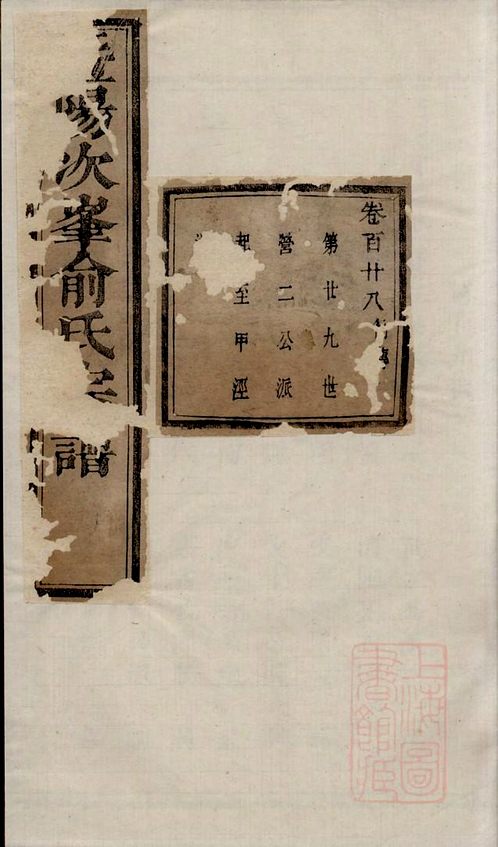 陽次峯俞氏宗譜
卷百廿八行
第廿九世
營二公派
起至甲涇
上海圖
書館藏